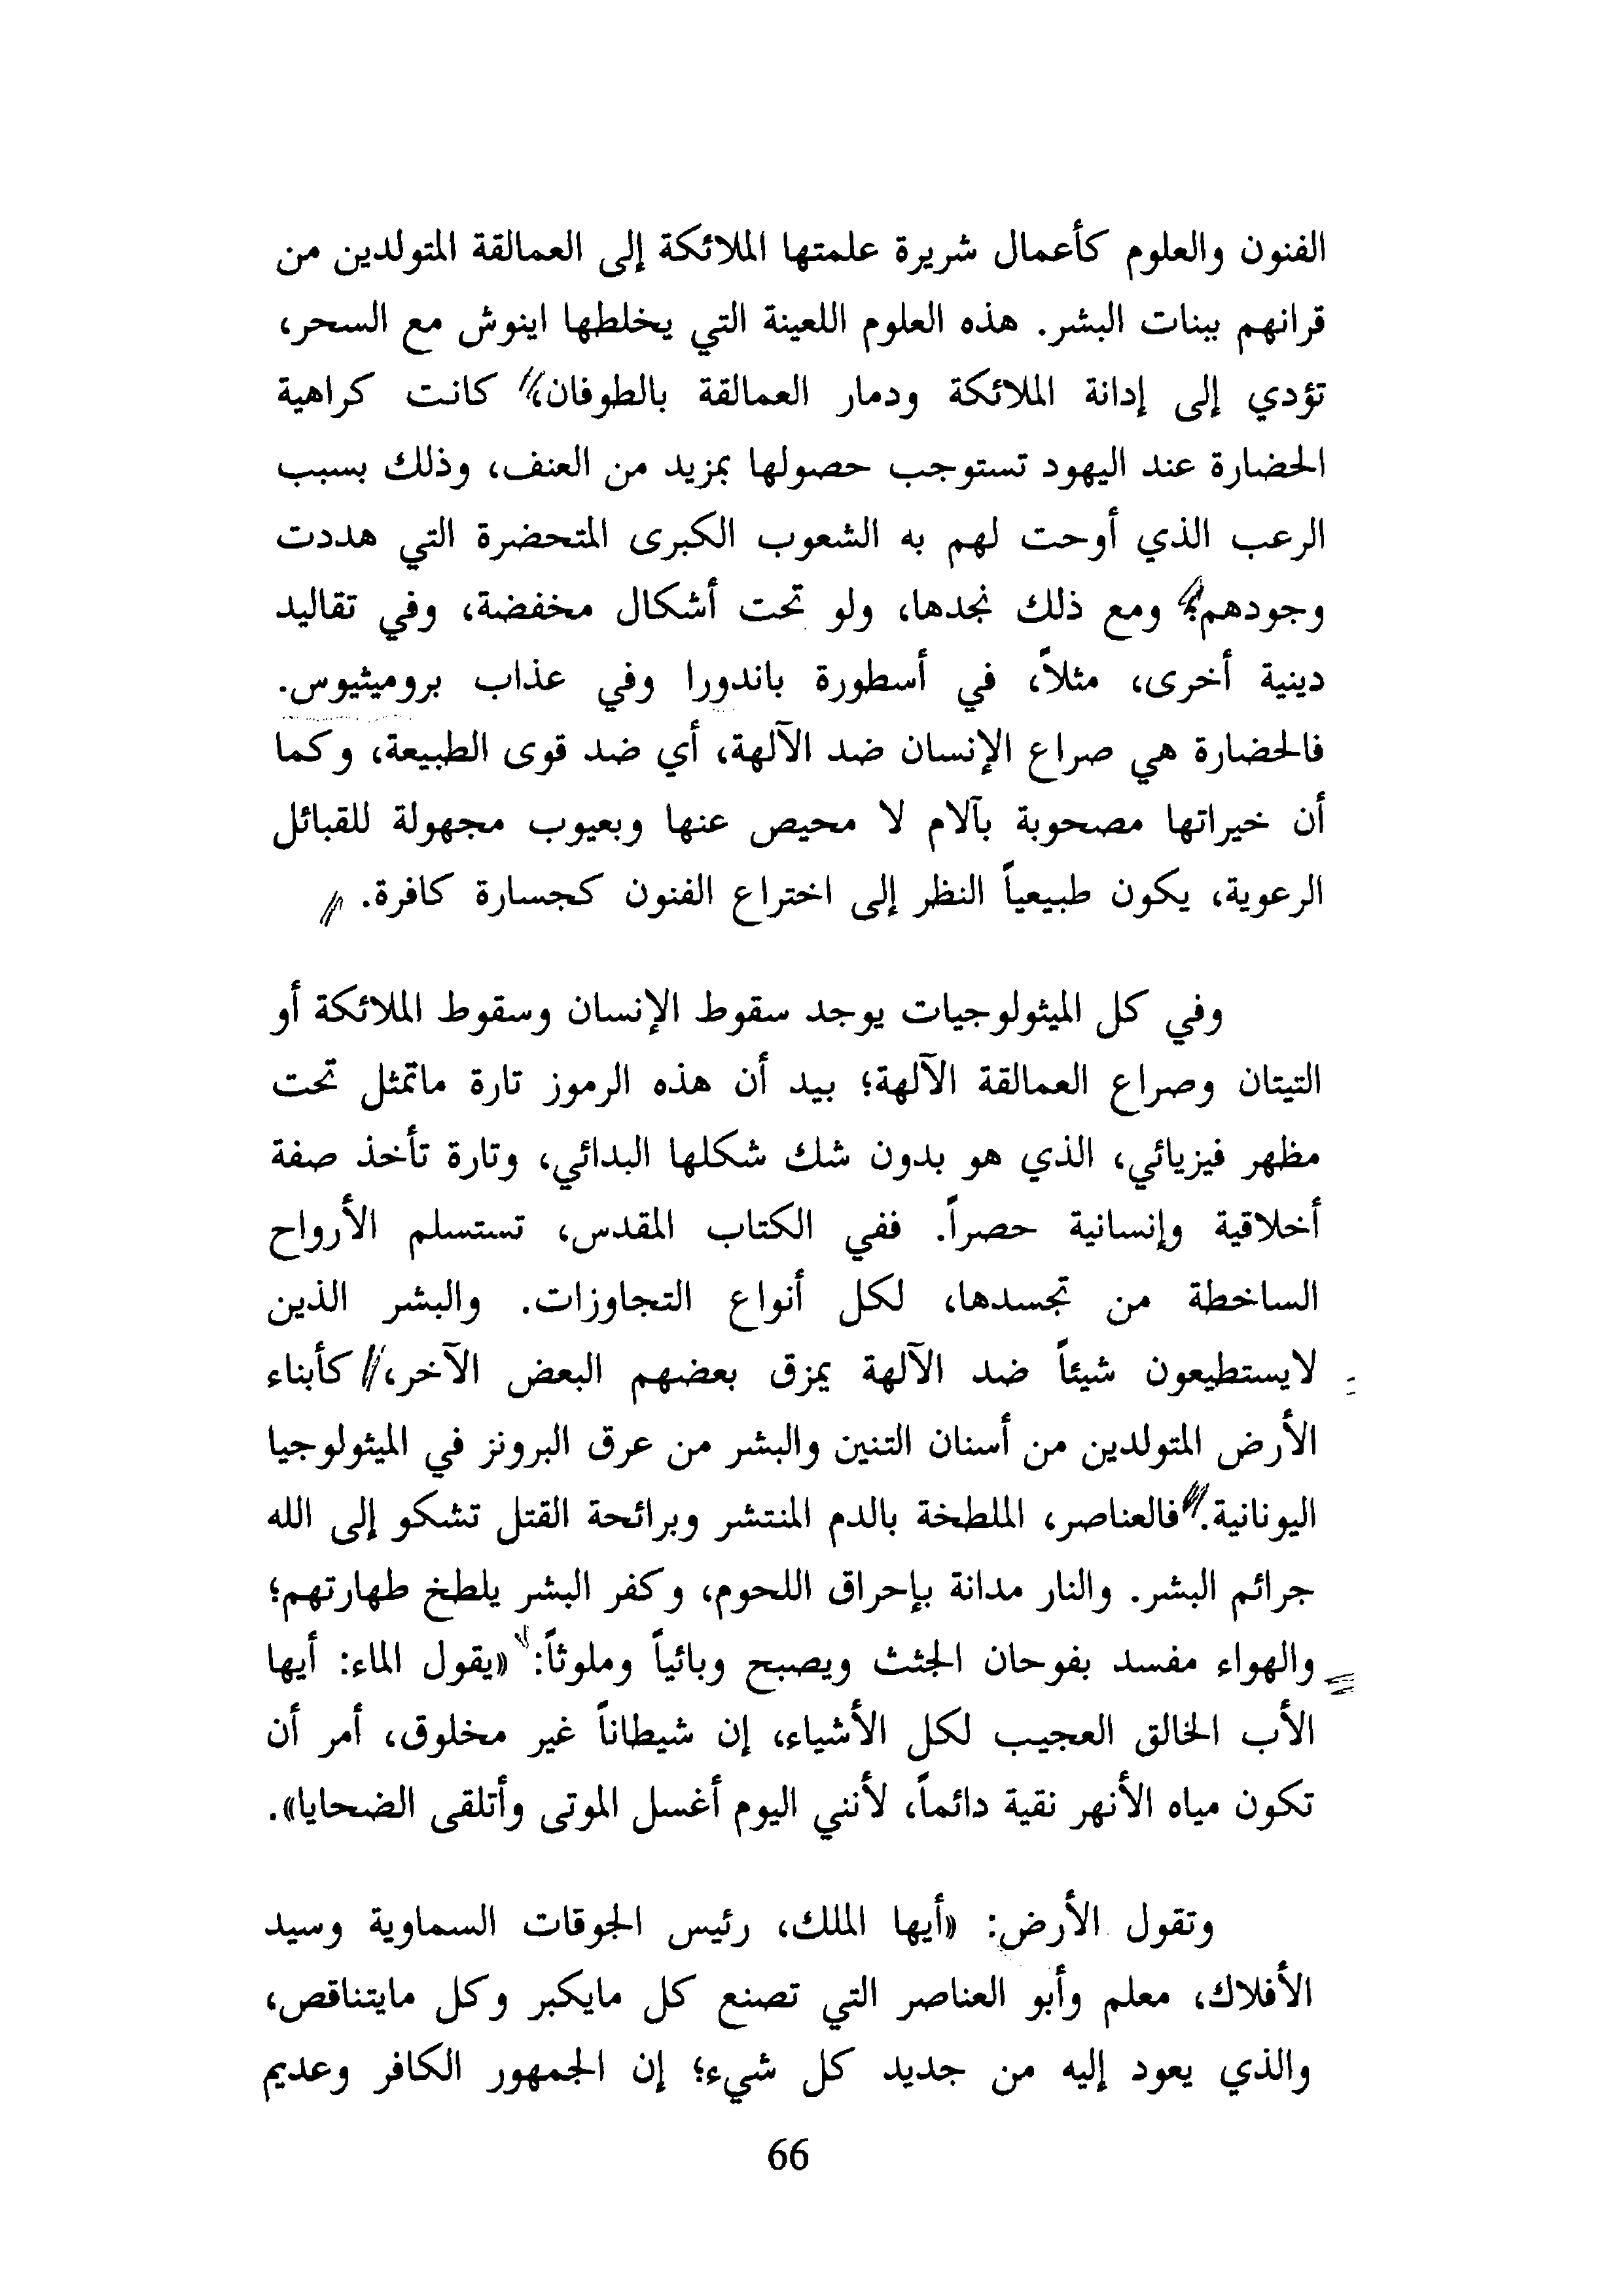 الفنون والعلوم كأعمال شريرة علمتها الملائكة إلى العمالقة المتولدين من
قرانهم ببنات البشر. هذه العلوم اللعينة التي يخلطها اينوش مع السحر،
تؤدي إلى إدانة الملائكة ودمار العمالقة بالطوفان، كانت كراهية
الحضارة عند اليهود تستوجب حصولها بمزيد من العنف، وذلك بسبب
الرعب الذي أوحت لهم به الشعوب الكبرى المتحضرة التي هددت
وجودهم؛ ومع ذلك نجدها، ولو تحت أشكال مخفضة، وفي تقاليد
دينية أخرى، مثلاً، في أسطورة باندورا وفي عذاب بروميثيوس.
فالحضارة هي صراع الإنسان ضد الآلهة، أي ضد قوى الطبيعة، وكما
أن خيراتها مصحوبة بآلام لا محيص عنها وبعيوب مجهولة للقبائل
الرعوية، يكون طبيعياً النظر إلى اختراع الفنون كجسارة كافرة.
وفي كل الميثولوجيات يوجد سقوط الإنسان وسقوط الملائكة أو
التيتان وصراع العمالقة الآلهة؛ بيد أن هذه الرموز تارة ماتمثل تحت
مظهر فيزيائي، الذي هو بدون شك شكلها البدائي، وتارة تأخذ صفة
أخلاقية وإنسانية حصراً. ففي الكتاب المقدس، تستسلم الأرواح
الساخطة من تجسدها، لكل أنواع التجاوزات. والبشر الذين
لايستطيعون شيئاً ضد الآلهة يمزق بعضهم البعض الآخر، كأبناء
الأرض المتولدين من أسنان التنين والبشر من عرق البرونز في الميثولوجيا
اليونانية. فالعناصر، الملطخة بالدم المنتشر وبرائحة القتل تشكو إلى الله
جرائم البشر. والنار مدانة بإحراق اللحوم، وكفر البشر يلطخ طهارتهم؛
والهواء مفسد بفوحان الجثث ويصبح وبائياً وملوثاً: «يقول الماء: أيها
الأب الخالق العجيب لكل الأشياء، إن شيطاناً غير مخلوق، أمر أن
تكون مياه الأنهر نقية دائماً، لأنني اليوم أغسل الموتى وأتلقى الضحايا».
وتقول الأرض: «أيها الملك، رئيس الجوقات السماوية وسيد
الأفلاك، معلم وأبو العناصر التي تصنع كل مايكبر وكل مايتناقص،
والذي يعود إليه من جديد كل شيء؛ إن الجمهور الكافر وعديم
66